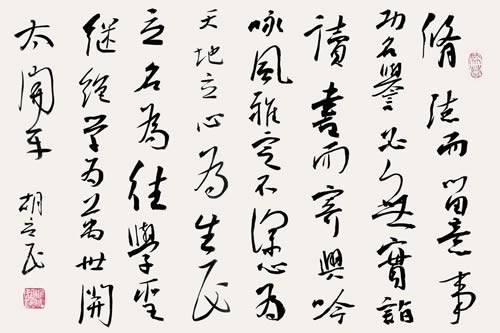 脩德而留意事
功名譽必無實詣
讀書而寄興吟
咏風雅定不深心為
天地立心為生民
立名為往學聖
継絶学为萬世開
太平
胡立民